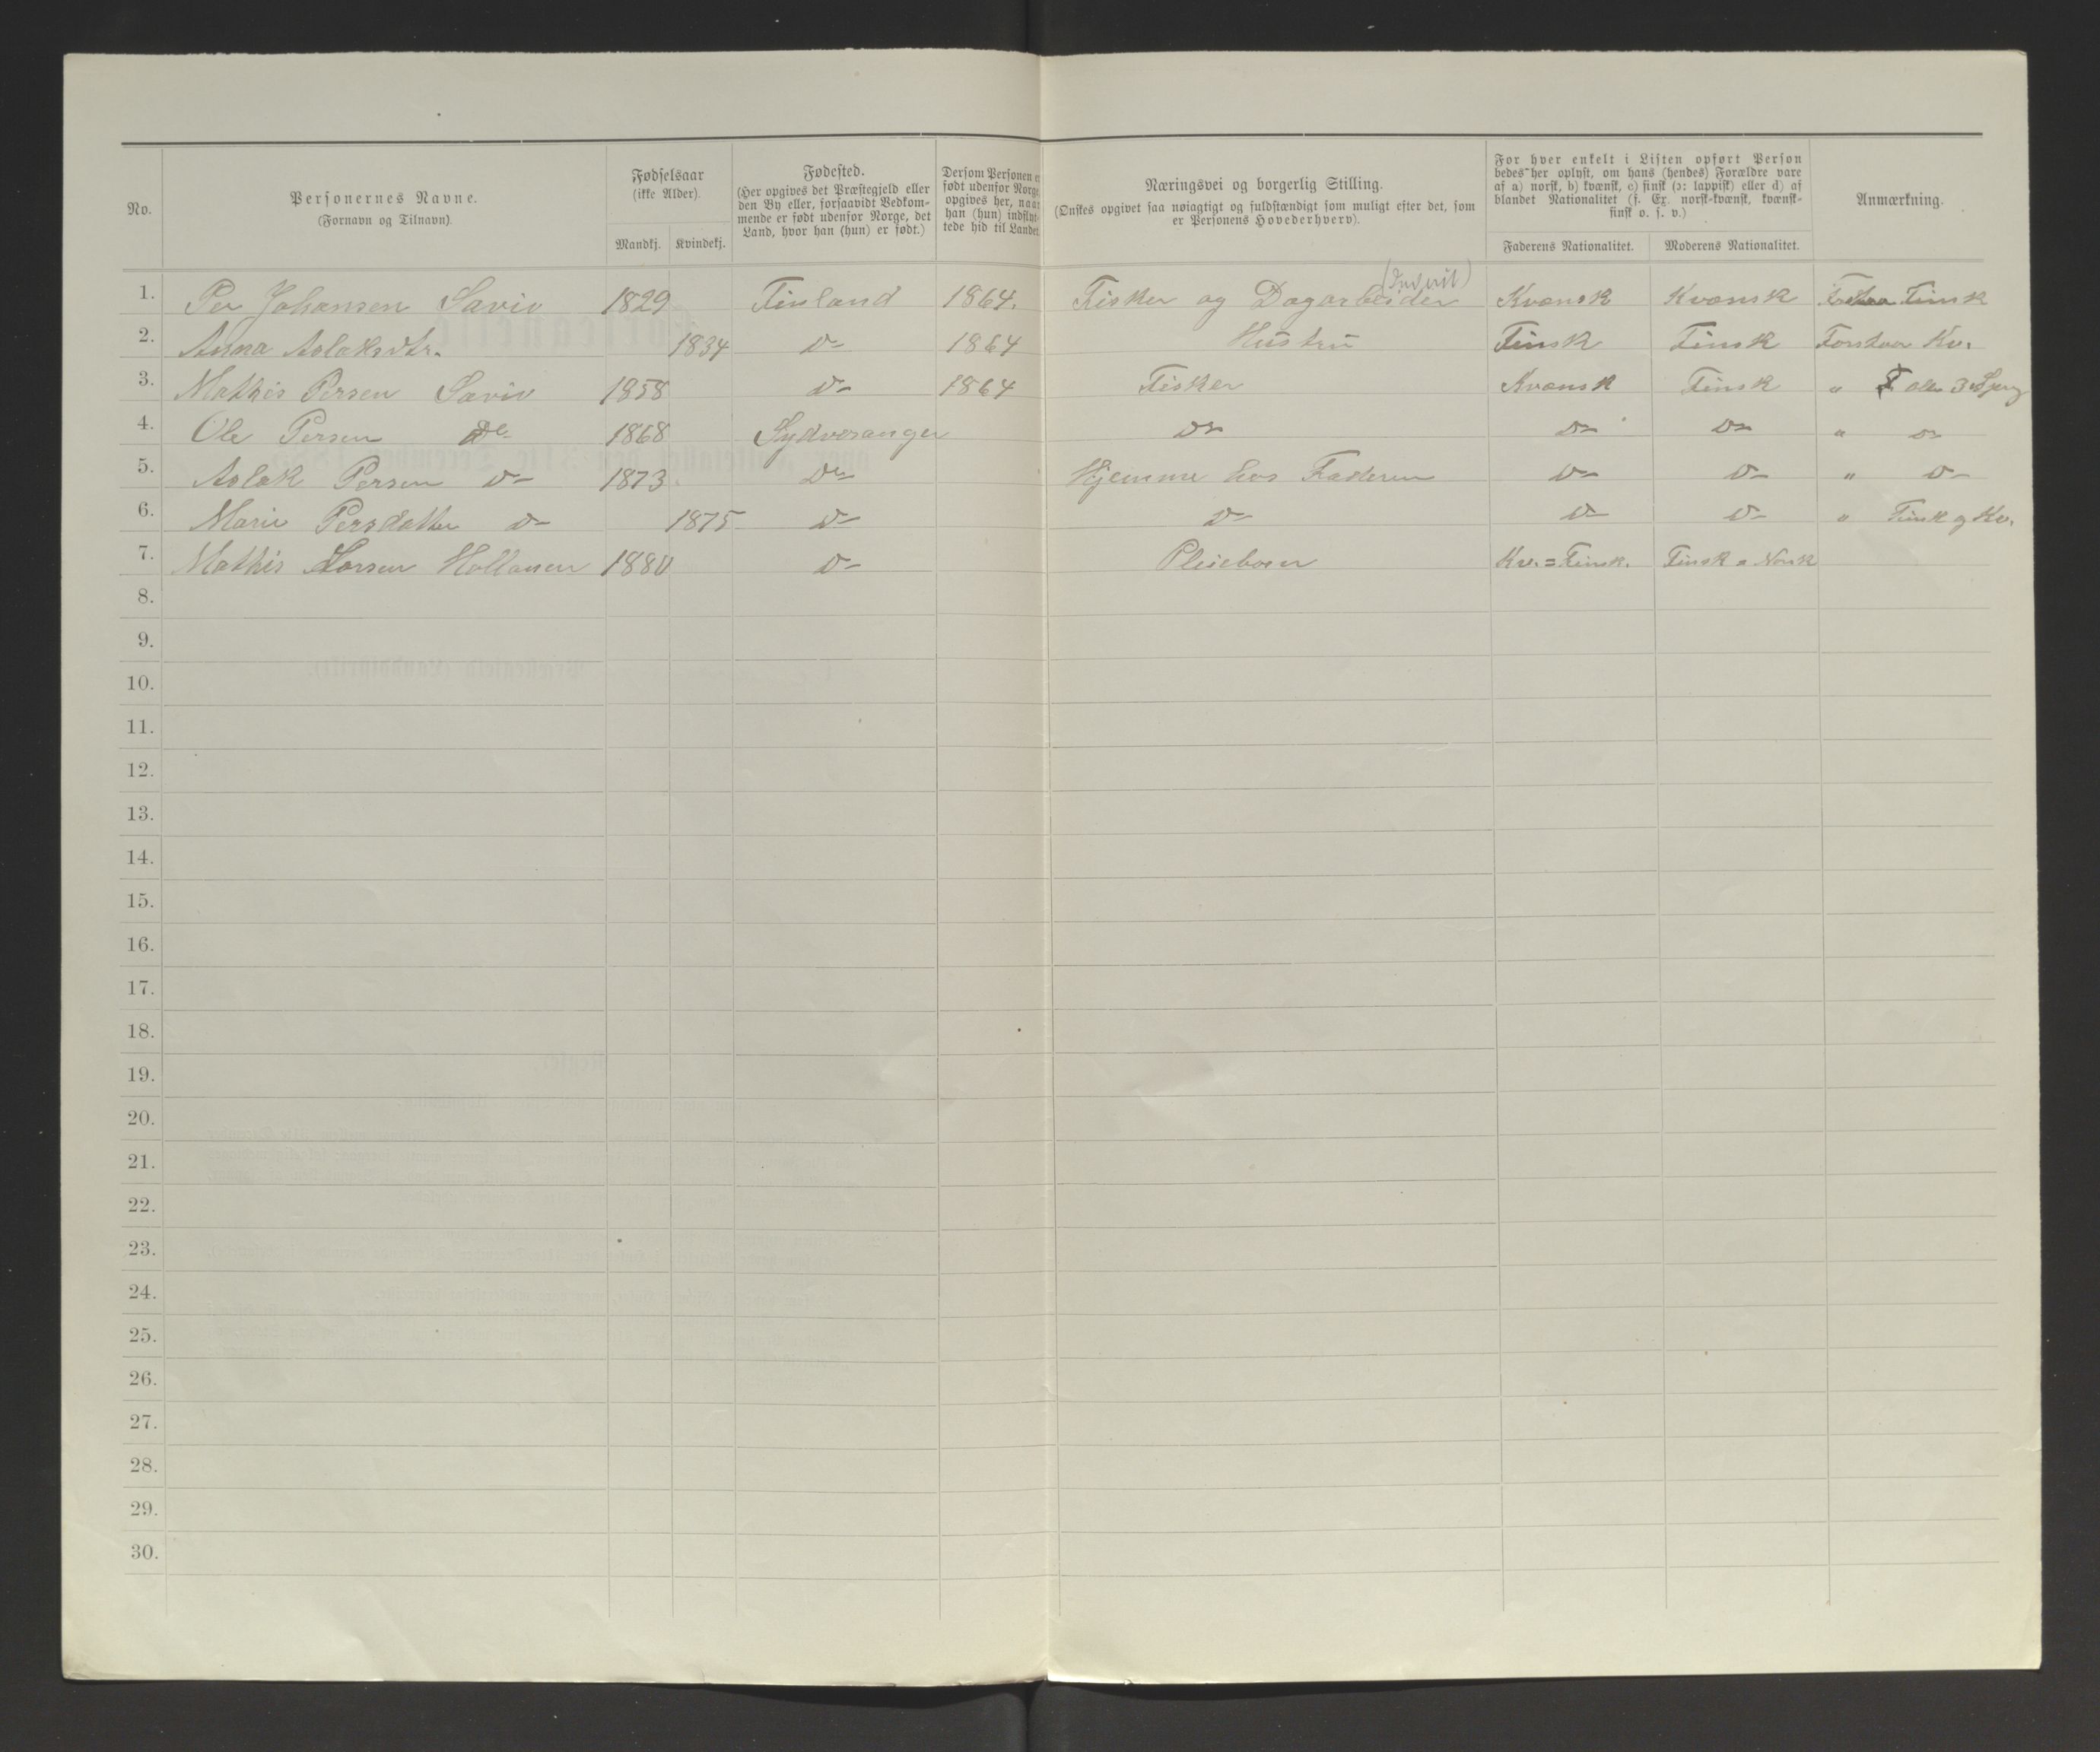 No.
Personernes Navne.
(Fornavn og Tilnavn).
Fødselsaar
(ikke Alder).
Mandkj. Kvindekj.
Fødested.
(Her opgives det Præstegjeld eller
den By eller, forsaavidt Vedkom-
mende er født udenfor Norge, det
Land, hvor han (hun) er født.)
Dersom Personen er
født udenfor Norge,
opgives her, naar
han (hun) indflyt-
tede hid til Landet.
Næringsvei og borgerlig Stilling.
(Ønskes opgivet saa nøiagtigt og fuldstændigt som muligt efter det, som
er Personens Hovederhverv).
For hver enkelt i Listen opført Person
bedes her oplyst, om hans (hendes) Forældre vare
af a) norsk, b) kvænsk, c) finsk (ɔ: lappisk) eller d) af
blandet Nationalitet (f. Ex. norsk-kvænsk, kvænsk-
finsk o. s. v.)
Faderens Nationalitet. Moderens Nationalitet.
Anmærkning.
1. Per Johansen Saviv 1829 Finland 1864. Fisker og Dagarbeider Kvænsk Kvænsk Finsk
2. Anna Aslaksdtr. 1834 D- 1864 Hustru Finsk Finsk Forstaar Kv.
3. Mathis Persen Saviv 1858 D- 1864 Fisker Kvænsk Finsk " alle 3 Sprog
4. Ole Persen De- 1868 Sydvaranger Do D- Do " D-
5. Aslak Persen D- 1873 Do Hjemme hos Faderen D- D- " D-
6. Marie Persdatter D- 1875 D- D- D- D- " Finsk og Kv.
7. Mathis Larsen Hallonen 1880 D- Pleiebarn Kv.=Finsk. Finsk = Norsk
8.
9.
10.
11.
12.
13.
14.
15.
16.
17.
18.
19.
20.
21.
22.
23.
24.
25.
26.
27.
28.
29.
30.